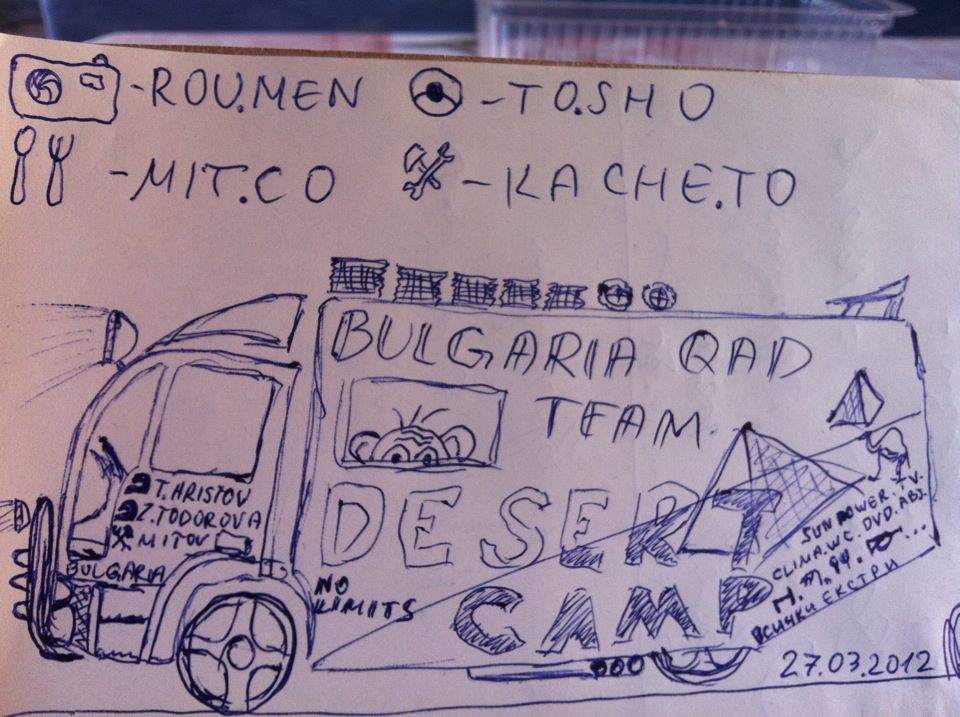 -ROU.MEN
-TO.SHO
-MIT.CO
-KACHE.TO
BULGARIA QAD
TEAM.
DESERT
CAMP
T. HRISTOV
Z. TODOROVA
MITOV
BULGARIA
NO
LIMITS
SUN POWER. T.V.
CLIMA. WC. DVD. ABS.
ВСИЧКИ ЕКСТРИ
27.03.2012